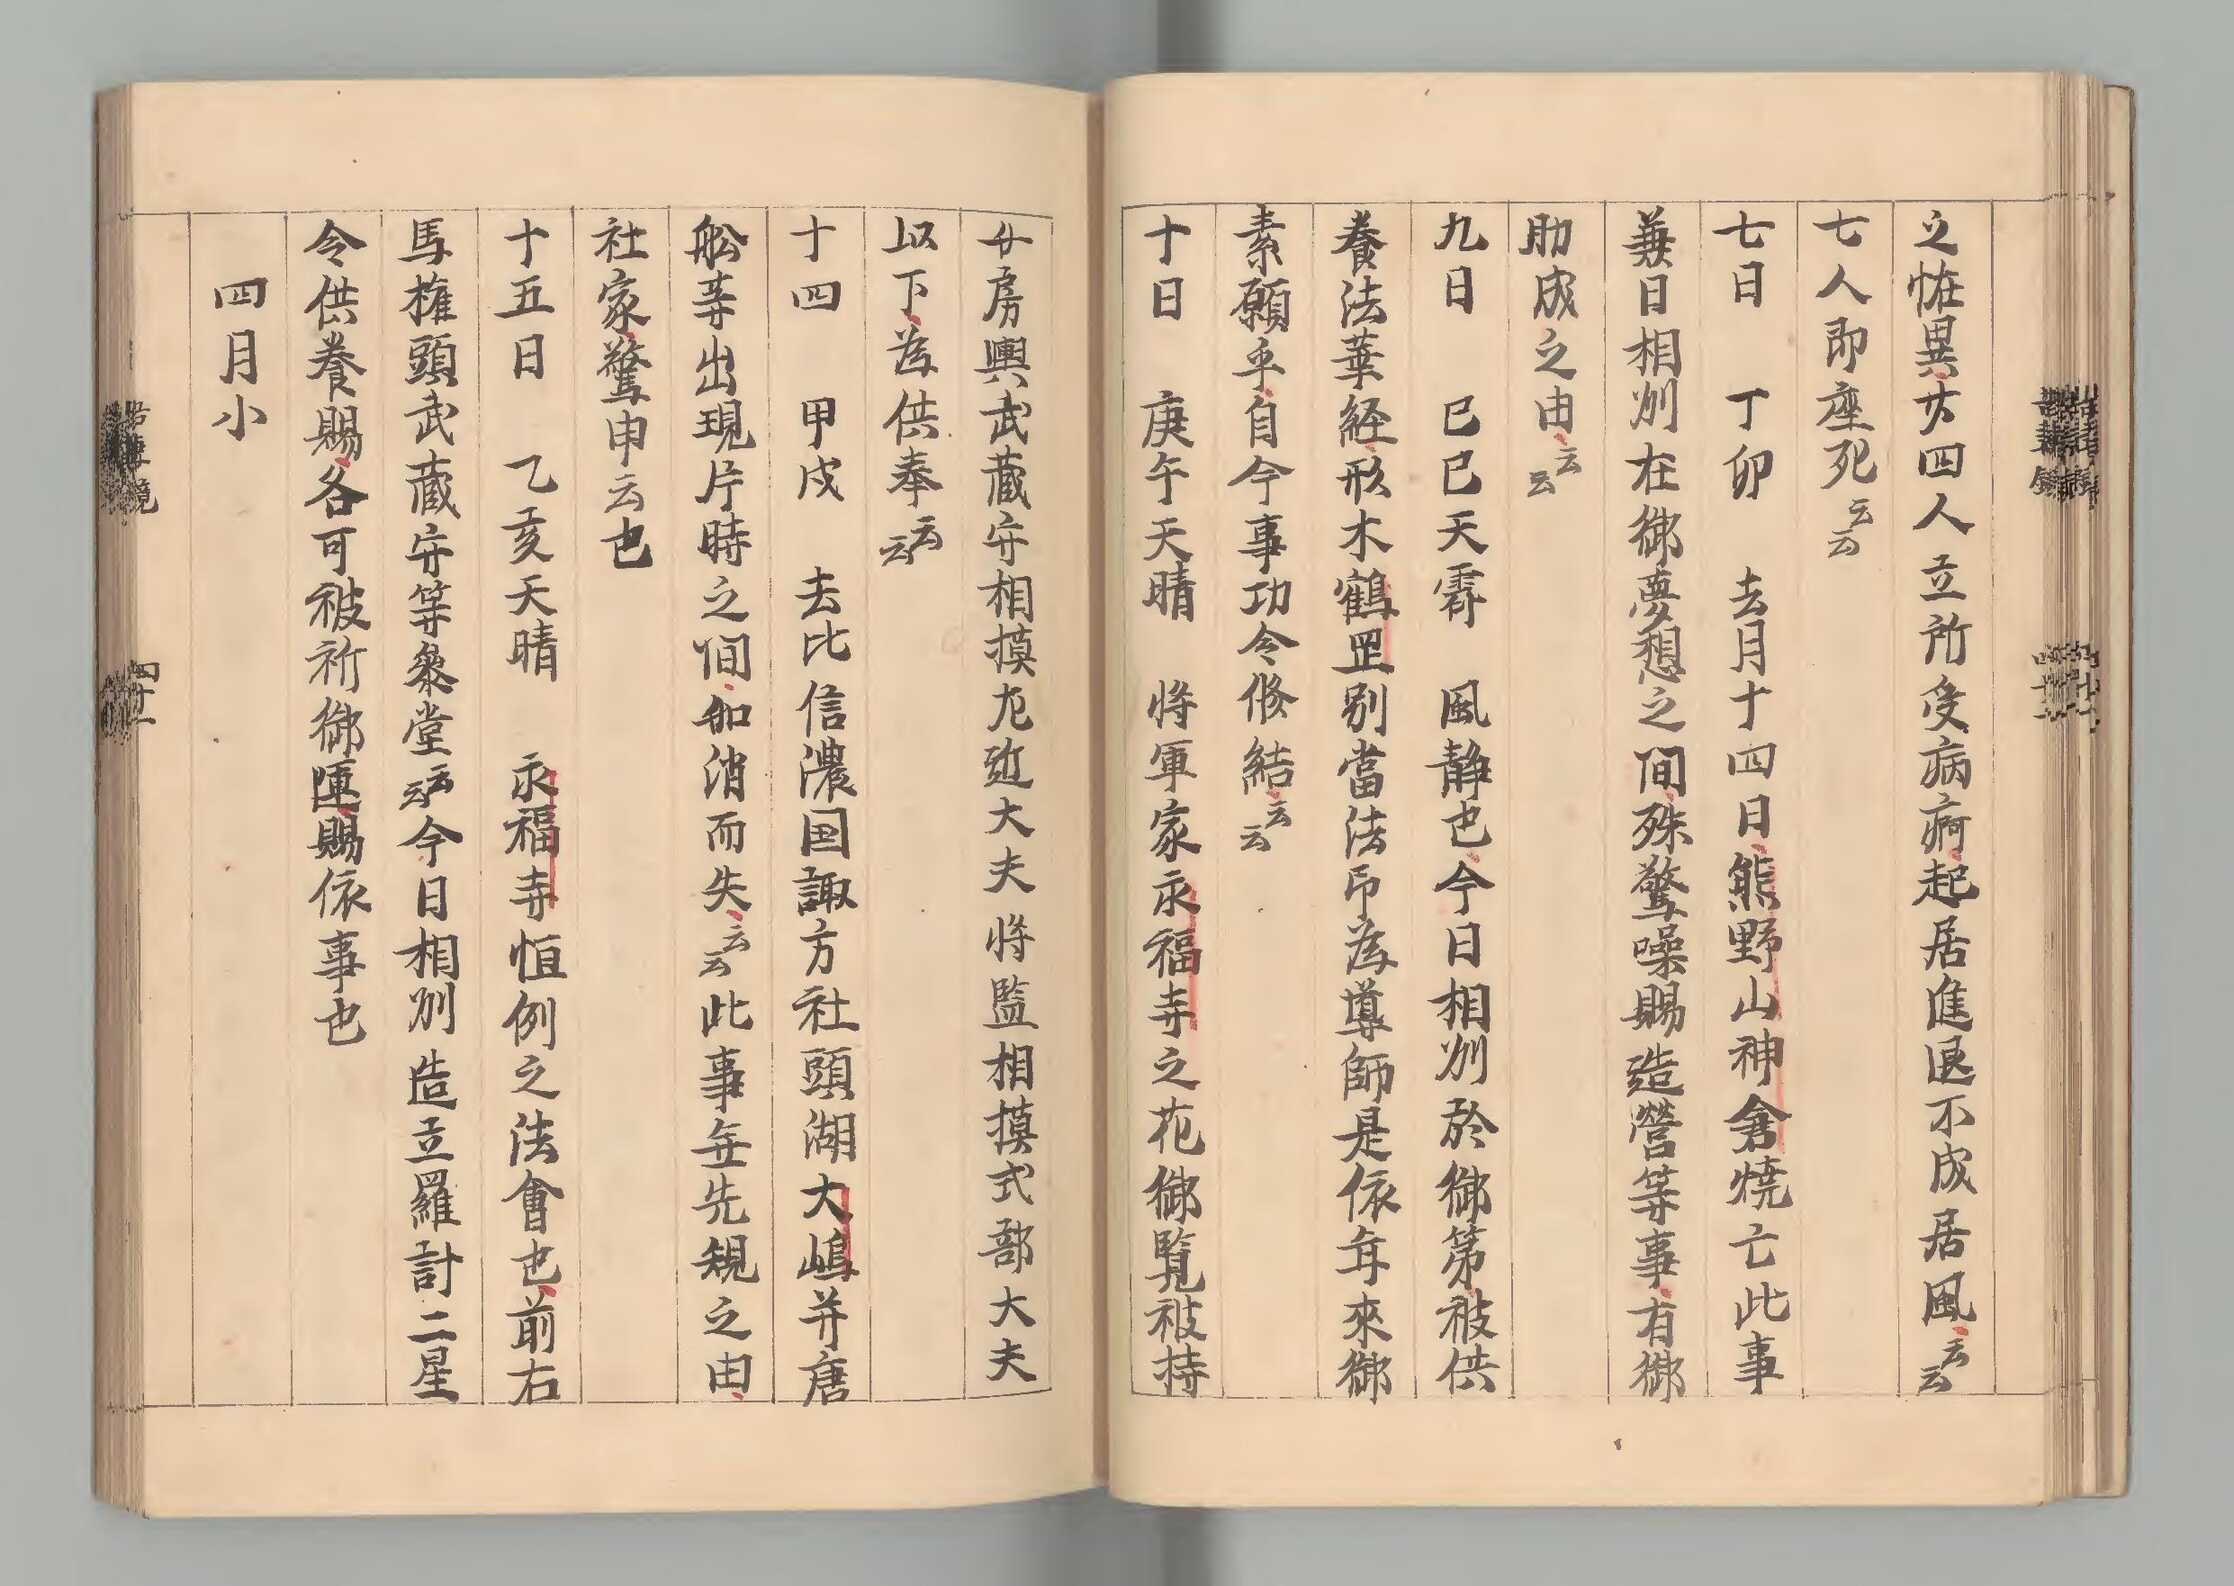 之恠異廿四人立所受病痾起居進退不成居風云云
七人即座死云云
七日　丁卯　去月十四日熊野山神倉焼亡此事
兼日相州在御夢想之間殊驚噪賜造營等事有御
助成之由云云
九日　己巳天霽　風静也今日相州於御第被供
養法華経形木鶴罡別當法印為導師是依年來御
素願乎自今事功令修結云云
十日　庚午天晴　将軍家永福寺之花御覧被持
女房輿武蔵守相摸左近大夫将監相摸式部大夫
以下為供奉云云
十四　甲戌　去比信濃国諏方社頭湖大嶋并唐
舩等出現片時之間如消而失云云此事無先規之由
社家驚申云也
十五日　乙亥天晴　永福寺恒例之法會也前右
馬権頭武蔵守等参堂云云今日相州造立羅計二星
令供養賜各可被祈御運賜依事也
四月小
四十一